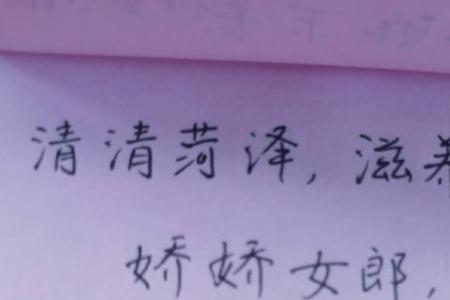 清清菏泽，滋养
娇娇女郎，